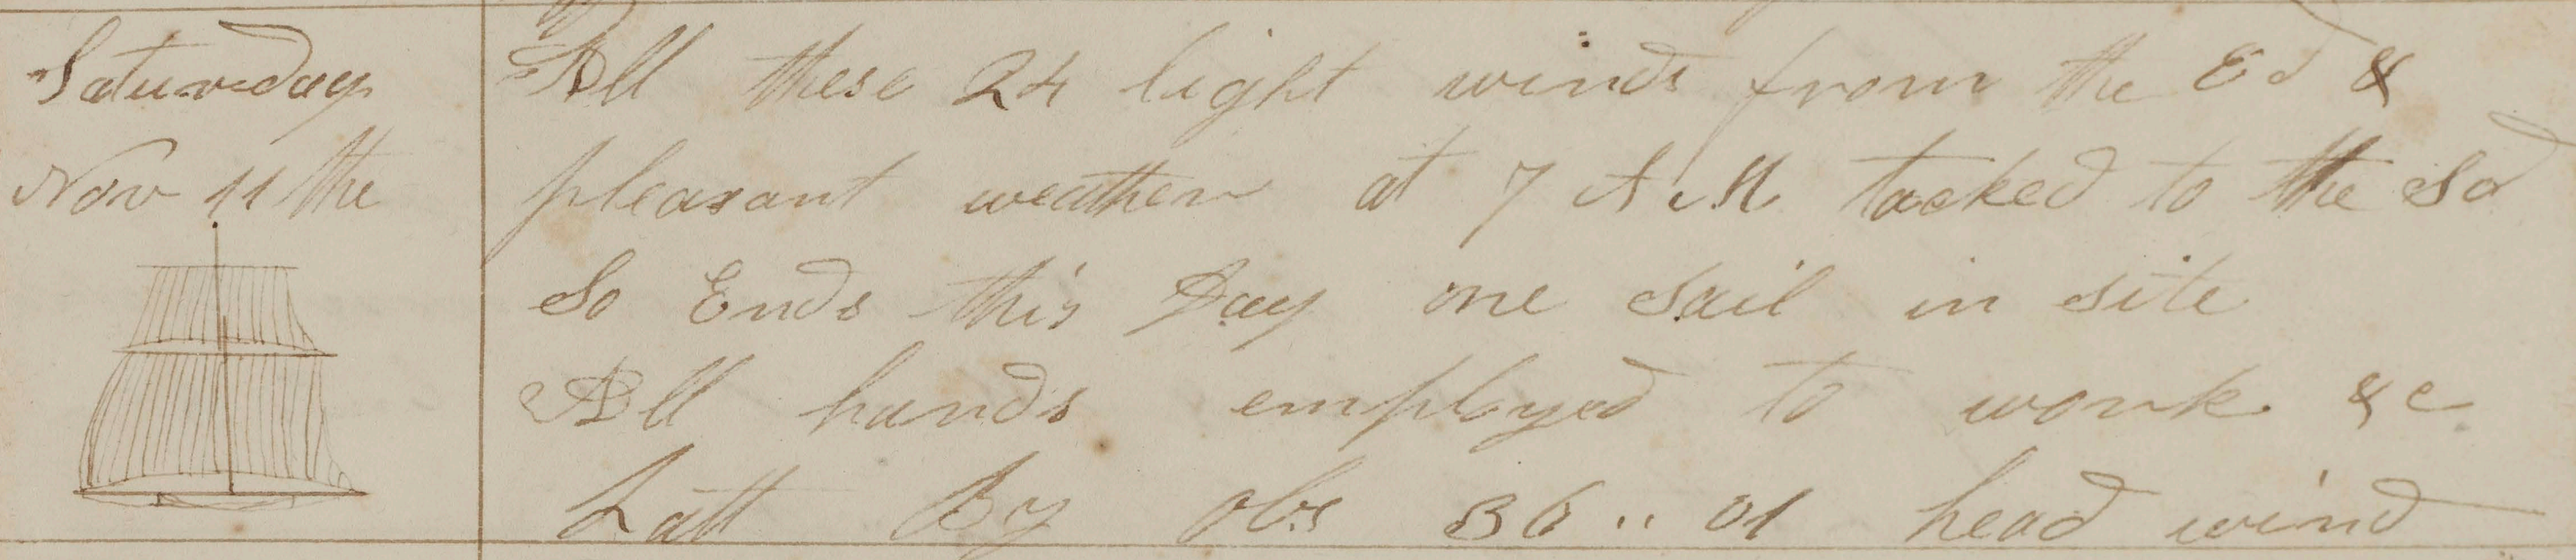 Saturday
Nov 11 the
All these 24 light winds from the Ed &
pleasant weather at 7 A.M. tacked to the Sd
So Ends this Day one sail in site
All hands employed to work &c
Latt By obs 36 .. 01 head wind